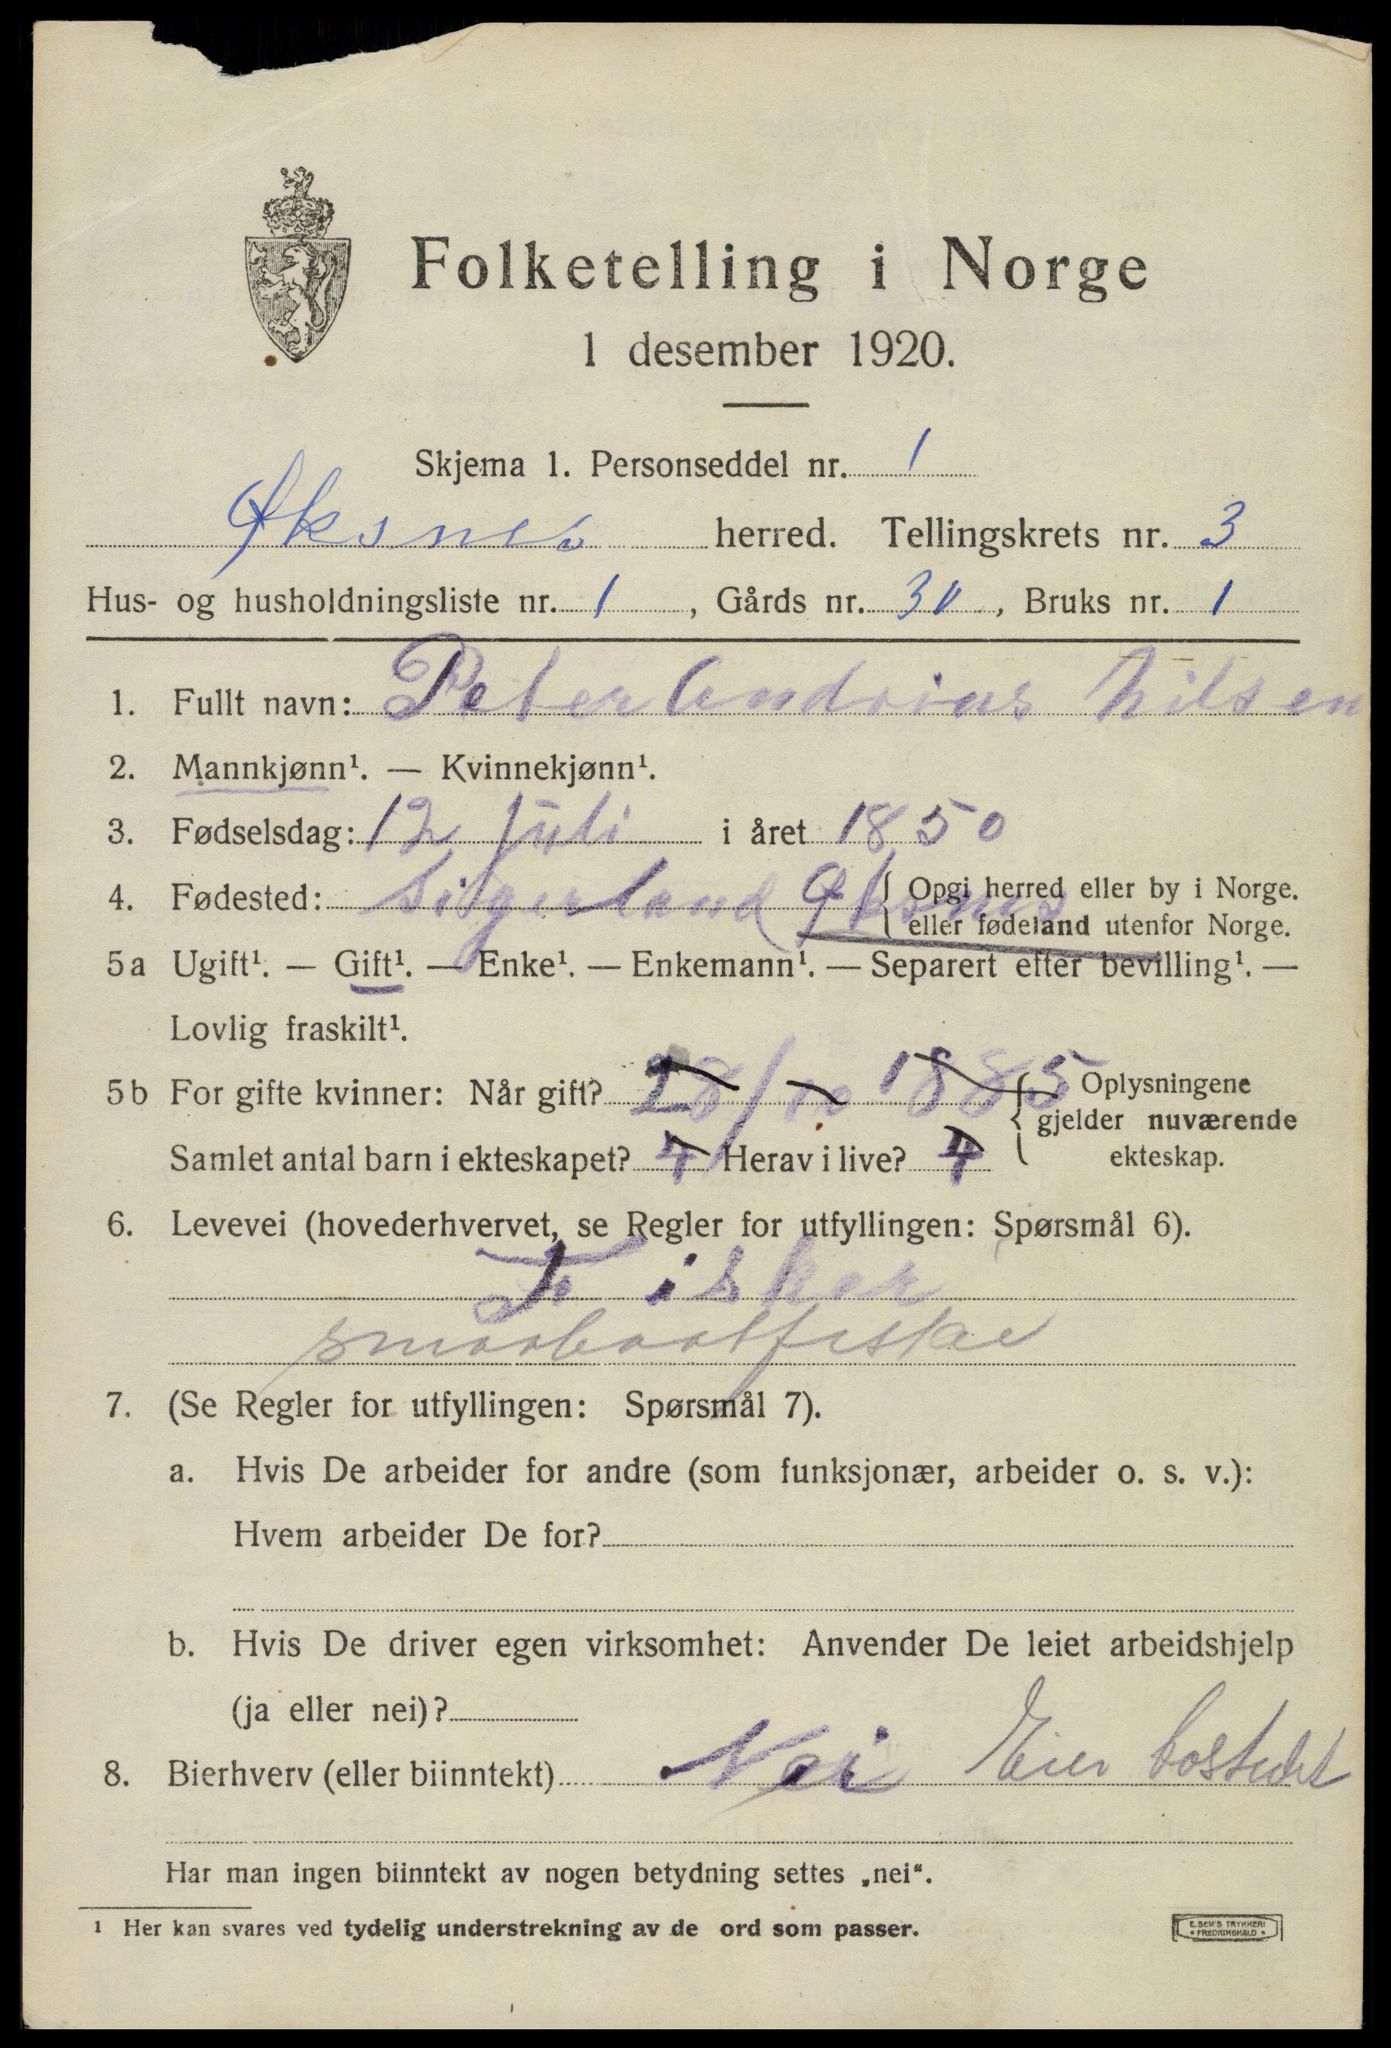 Folketelling i Norge
1 desember 1920.
Skjema 1. Personseddel nr. 1
Øksnes herred. Tellingskrets nr. 3
Hus- og husholdningsliste nr. 1, Gårds nr. 30, Bruks nr. 1
1. Fullt navn: Peter Andrias Nilsen
2. Mannkjønn¹. — Kvinnekjønn¹.
3. Fødselsdag: 12 Juli i året 1850
4. Fødested: Tigerland Øksnes { Opgi herred eller by i Norge.
eller fødeland utenfor Norge.
5a Ugift¹. — Gift¹. — Enke¹. — Enkemann¹. — Separert efter bevilling¹. —
Lovlig fraskilt¹.
5b For gifte kvinner: Når gift? 28/10 1885 { Oplysningene
gjelder nuværende
Samlet antal barn i ekteskapet? 4 Herav i live? 4 ekteskap.
6. Levevei (hovederhvervet, se Regler for utfyllingen: Spørsmål 6).
Fisker
smaabaatfiske
7. (Se Regler for utfyllingen: Spørsmål 7).
a. Hvis De arbeider for andre (som funksjonær, arbeider o. s. v.):
Hvem arbeider De for?
b. Hvis De driver egen virksomhet: Anvender De leiet arbeidshjelp
(ja eller nei)?
8. Bierhverv (eller biinntekt) Nei Eier bostedet
Har man ingen biinntekt av nogen betydning settes „nei“.
¹ Her kan svares ved tydelig understrekning av de ord som passer.
E. SEM'S TRYKKERI
* FREDRIKSHALD *